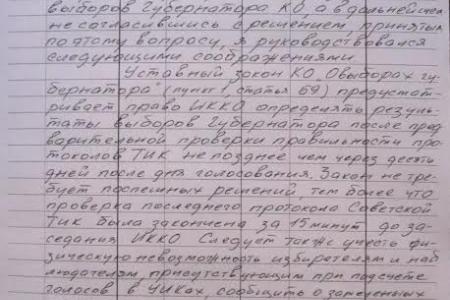 выборов Губернатора КО, а в дальнейшем
не согласившись с решением, принятым
по этому вопросу, я руководствовался
следующими соображениями.
Уставный закон КО „О выборах Гу-
бернатора" (пункт 1, статья 69) предусмат-
ривает право ИККО определять резуль-
таты выборов Губернатора после пред-
варительной проверки правильности про-
токолов ТИК не позднее чем через десять
дней после дня голосования. Закон не тре-
бует поспешных решений, тем более что
проверка последнего протокола Советской
ТИК была закончена за 15 минут до за-
седания ИККО. Следует также учесть фи-
зическую невозможность избирателям и наб
людателям, присутствующим при подсчете
голосов в УИКах, сообщить о замеченных